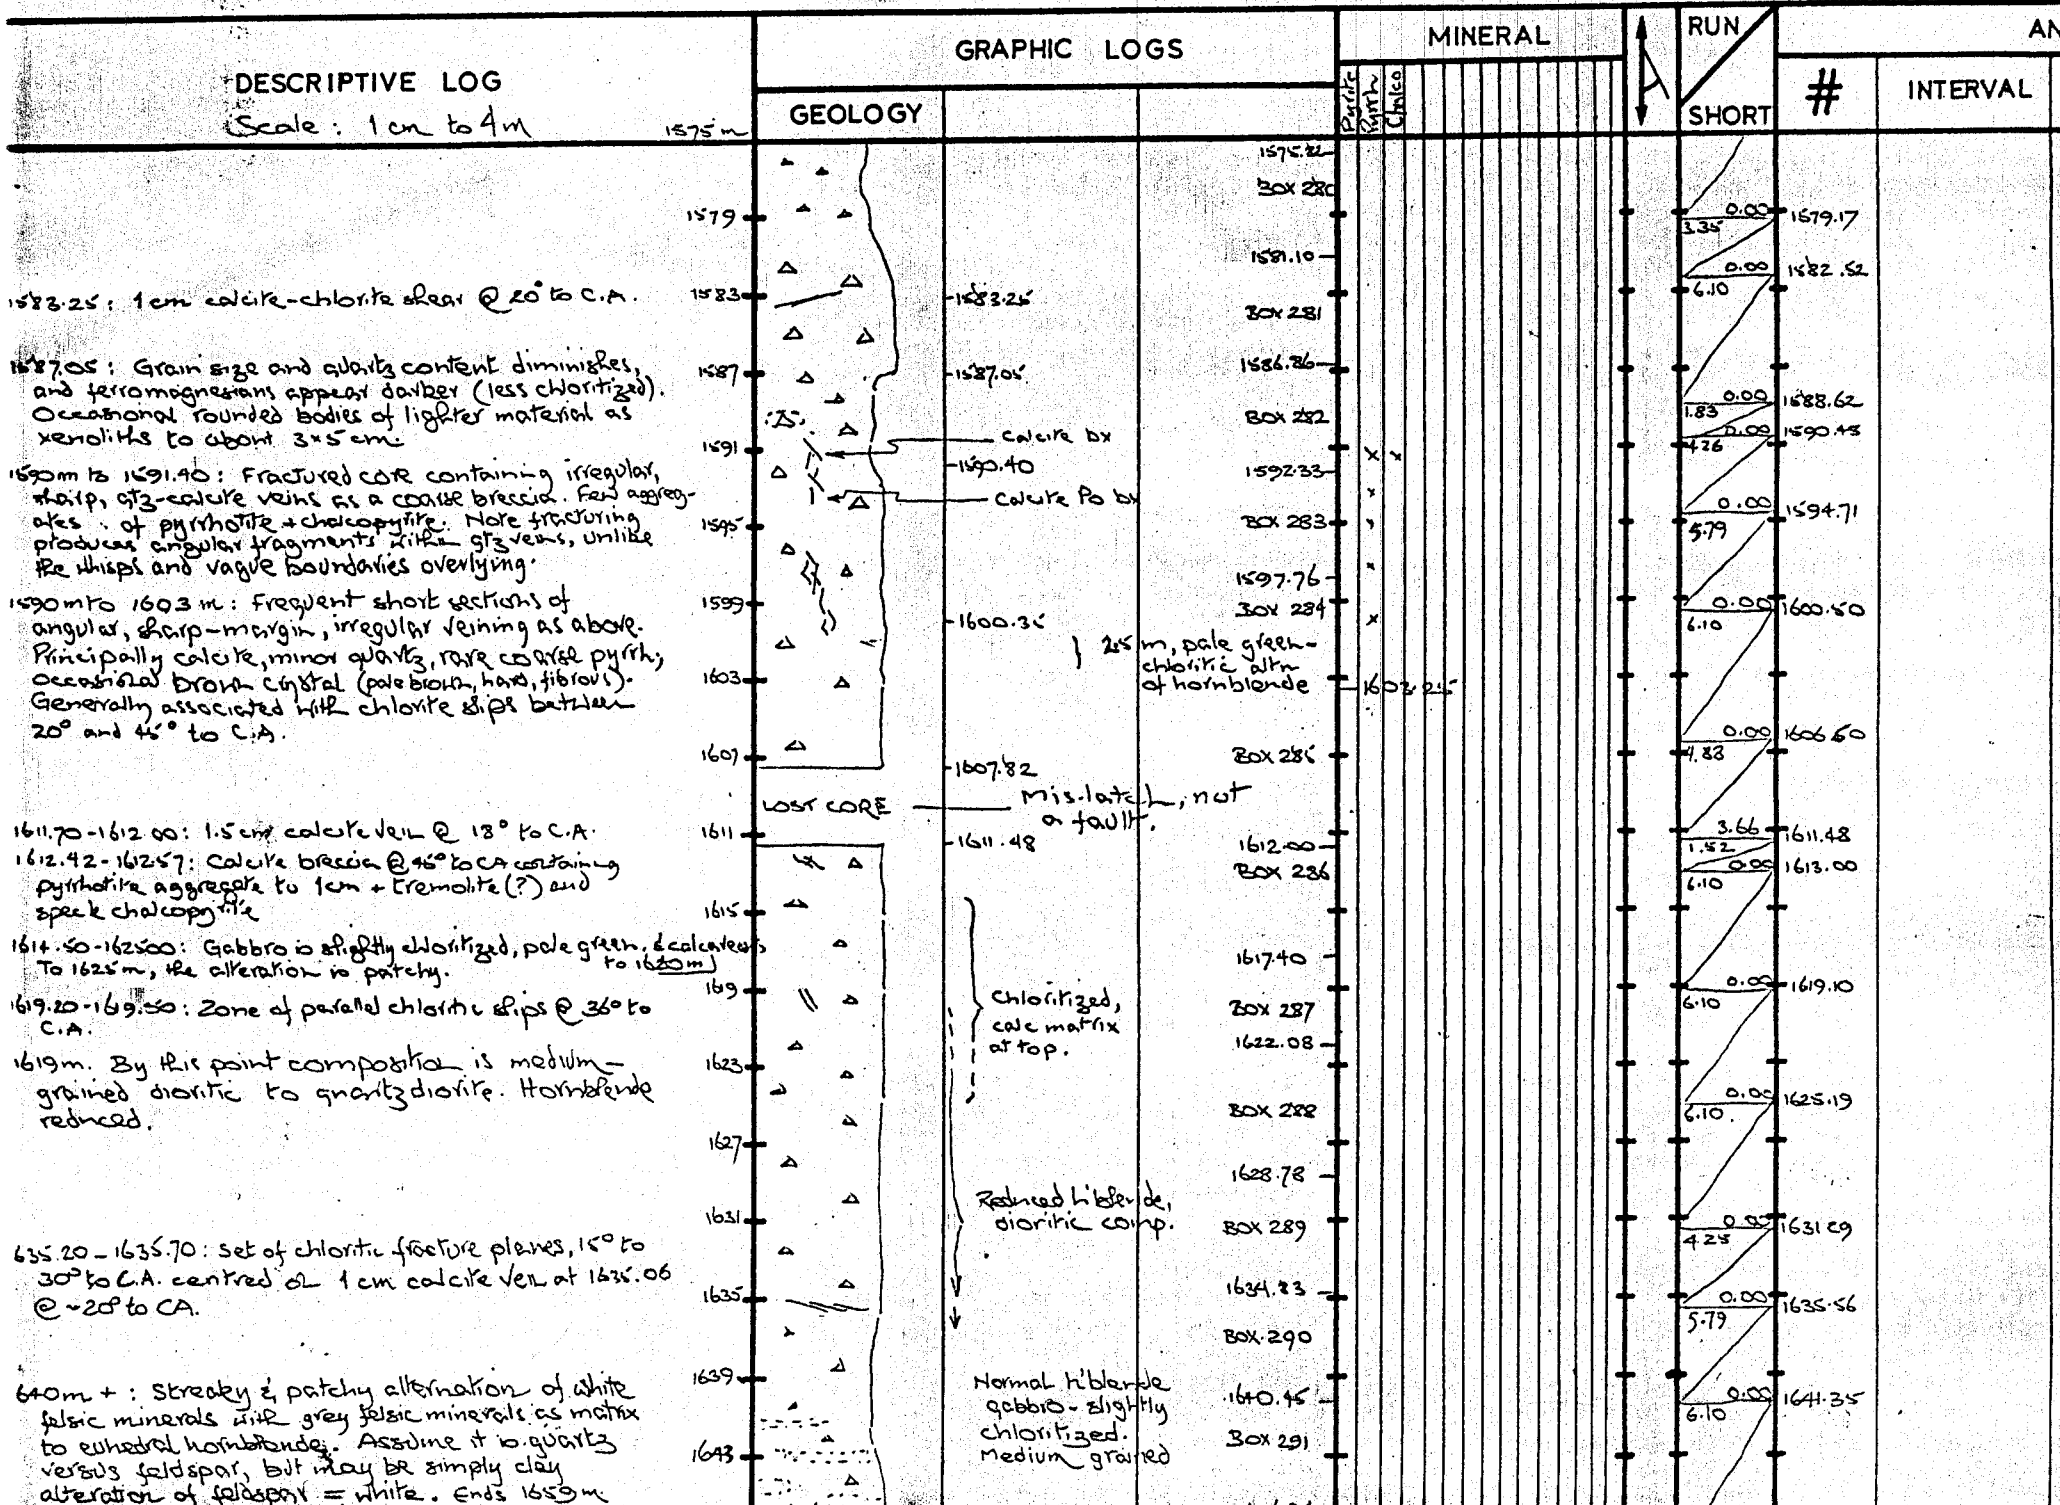 DESCRIPTIVE LOG
Scale: 1 cm to 4 m
1575 m
GRAPHIC LOGS
GEOLOGY
MINERAL
Pyrite
Pyrrh
Chalco
RUN
SHORT
#
INTERVAL
AN
1583.25: 1 cm calcite-chlorite shear @ 20° to C.A.
1587.05: Grain size and quartz content diminishes,
and ferromagnesians appear darker (less chloritized).
Occasional rounded bodies of lighter material as
xenoliths to about 3×5 cm.
1590m to 1591.40: Fractured core containing irregular,
sharp, qtz-calcite veins as a coarse breccia. Few aggreg-
ates of pyrrhotite + chalcopyrite. Note fracturing
produces angular fragments within qtz veins, unlike
the whisps and vague boundaries overlying.
1590m to 1603 m: Frequent short sections of
angular, sharp-margin, irregular veining as above.
Principally calcite, minor quartz, rare coarse pyrrh,
occasional brown crystal (pale brown, hard, fibrous).
Generally associated with chlorite slips between
20° and 45° to C.A.
1611.70-1612.00: 1.5 cm calcite vein @ 18° to C.A.
1612.42-1612.57: Calcite breccia @ 45° to CA containing
pyrrhotite aggregate to 1cm + tremolite(?) and
speck chalcopyrite
1614.50-1625.00: Gabbro is slightly chloritized, pale green, & calcareous
to 1620 m
To 1625 m, the alteration is patchy.
1619.20-1619.50: Zone of parallel chloritic slips @ 36° to
C.A.
1619m. By this point composition is medium-
grained dioritic to quartz diorite. Hornblende
reduced.
635.20 - 1635.70: Set of chloritic fracture planes, 15° to
30° to C.A. centred on 1 cm calcite vein at 1635.06
@ ~20° to CA.
640m +: Streaky & patchy alternation of white
felsic minerals with grey felsic minerals as matrix
to euhedral hornblende. Assume it is quartz
versus feldspar, but may be simply clay
alteration of feldspar = white. Ends 1659 m
1579
1583
1587
1591
1595
1599
1603
1607
1611
1615
1619
1623
1627
1631
1635
1639
1643
LOST CORE
1583.25
1587.05
Calcite bx
1590.40
Calcite Po bx
1600.35
2.5 m, pale green-
chloritic altn
of hornblende
1607.82
Mis-latch, not
a fault.
1611.48
Chloritized,
calc matrix
at top.
Reduced h'blende,
dioritic comp.
Normal h'blende
gabbro - slightly
chloritized.
Medium grained
1575.22
BOX 280
1581.10
BOX 281
1586.86
BOX 282
1592.33
BOX 283
1597.76
BOX 284
1603.25
BOX 285
1612.00
BOX 286
1617.40
BOX 287
1622.08
BOX 288
1628.78
BOX 289
1634.83
BOX 290
1640.45
BOX 291
0.00 1579.17
3.35
0.00 1582.52
6.10
0.00 1588.62
1.83
0.00 1590.45
4.26
0.00 1594.71
5.79
0.00 1600.50
6.10
0.00 1606.60
4.88
3.66 1611.48
1.52
0.00 1613.00
6.10
0.00 1619.10
6.10
0.00 1625.19
6.10
0.00 1631.29
4.25
0.00 1635.56
5.79
0.00 1641.35
6.10